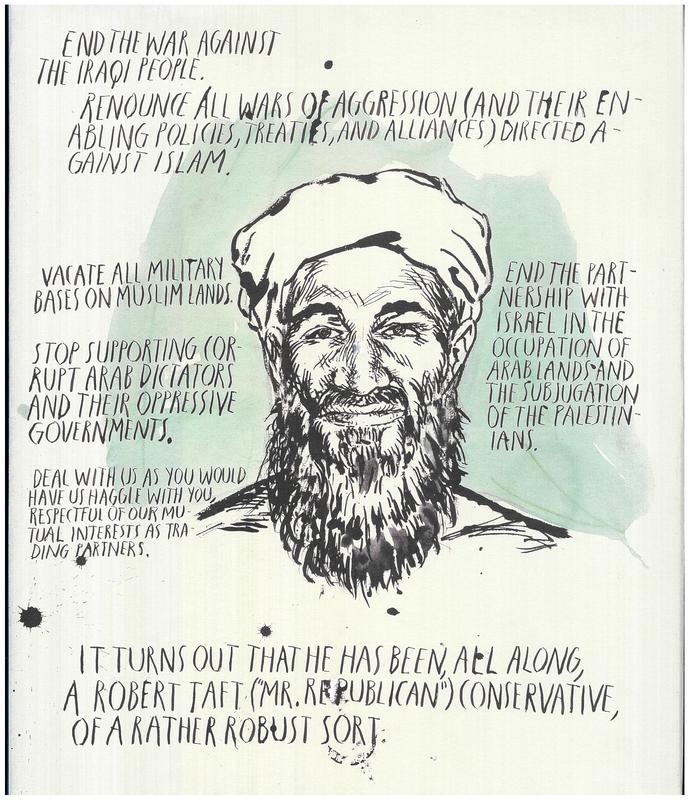 END THE WAR AGAINST
THE IRAQI PEOPLE.
RENOUNCE ALL WARS OF AGGRESSION (AND THEIR EN-
ABLING POLICIES, TREATIES, AND ALLIANCES) DIRECTED A-
GAINST ISLAM.
VACATE ALL MILITARY
BASES ON MUSLIM LANDS.
STOP SUPPORTING COR-
RUPT ARAB DICTATORS
AND THEIR OPPRESSIVE
GOVERNMENTS.
DEAL WITH US AS YOU WOULD
HAVE US HAGGLE WITH YOU,
RESPECTFUL OF OUR MU-
TUAL INTERESTS AS TRA-
DING PARTNERS.
END THE PART-
NERSHIP WITH
ISRAEL IN THE
OCCUPATION OF
ARAB LANDS AND
THE SUBJUGATION
OF THE PALESTIN-
IANS.
IT TURNS OUT THAT HE HAS BEEN, ALL ALONG,
A ROBERT TAFT ("MR. REPUBLICAN") CONSERVATIVE,
OF A RATHER ROBUST SORT.